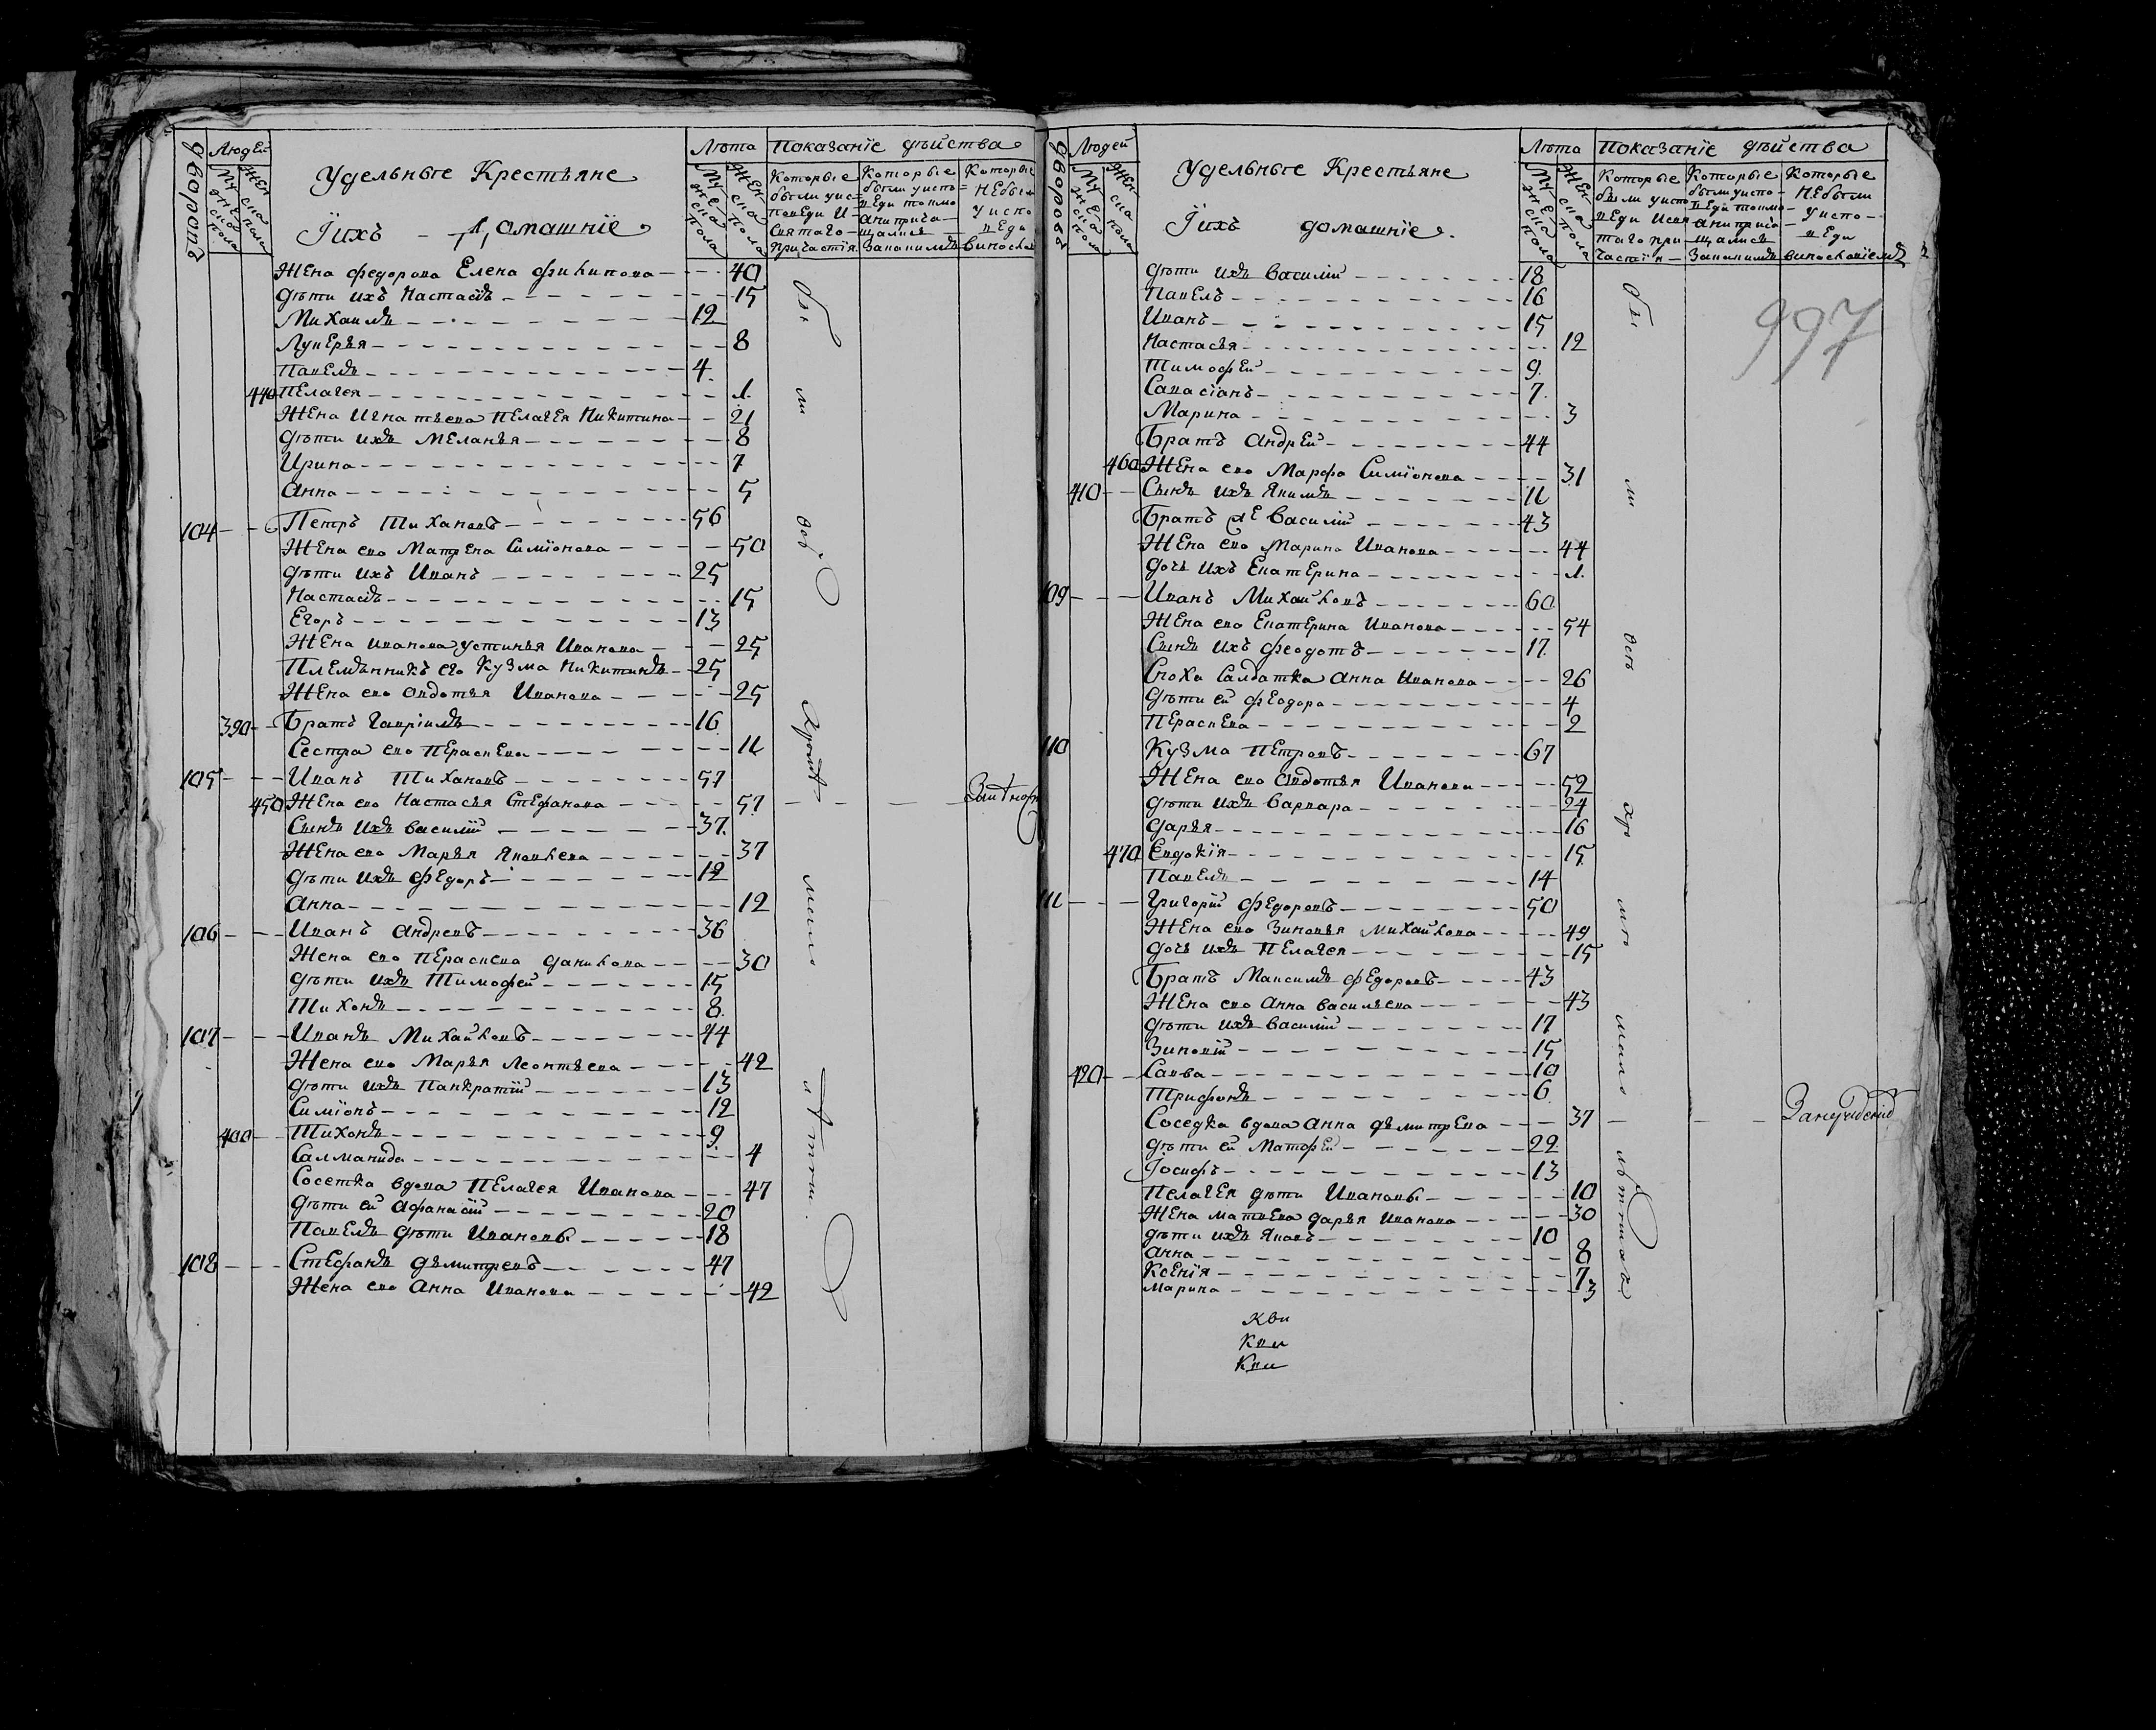 дворовъ
Людей
Мужеска пола
Женска пола
Удельные Крестьяне
Iихъ – домашнiе
Лѣта
Мужеска пола
Женска пола
Показанiе дѣйства
Которые были уисповеди И Святаго причастiя
Которые были уисповеди токмо анипричащались
Которые Небыли Уисповеди
Жена Федорова Елена Филипова – 40
Дѣти ихъ Настасiя – 15
Михаилъ – 12
Лукерья – 8
Павелъ – 4
440 Пелагея – 1
Жена Игнатьева Пелагея Никитина – 21
Дѣти ихъ Меланья – 8
Ирина – 7
Анна – 5
104 – Петръ Тихановъ – 56
Жена ево Матрена Симiонова – 50
Дѣти ихъ Иванъ – 25
Настасiя – 15
Егоръ – 13
Жена иванова устинья Иванова – 25
Племянникъ его Кузма Никитинъ – 25
Жена ево Овдотья Иванова – 25
390 – Братъ Гаврiилъ – 16
Сестра ево Пераскева – 11
105 – Иванъ Тихановъ – 57
450 Жена ево Настасья Стефанова – 57
Сынъ Ихъ Василiй – 37
Жена ево Марья Яковлева – 37
Дѣти Ихъ Федоръ – 12
Анна – 12
106 – Иванъ Андревъ – 36
Жена ево Пераскева Данилова – 30
Дѣти ихъ Тимофей – 15
Тихонъ – 8
107 – Иванъ Михайловъ – 44
Жена ево Марья Леонтьева – 42
Дѣти ихъ Панкратiй – 13
Симiонъ – 12
400 – Тихонъ – 9
Салманида – 4
Соседка вдова Пелагея Иванова – 47
Дѣти ей Афанасiй – 20
Павелъ Дѣти Ивановы – 18
108 – Стефанъ Дѣмитревъ – 47
Жена ево Анна Иванова – 42
дворовъ
Людей
Мужеска пола
Женска пола
Удельные Крестьяне
Iихъ домашнiе.
Лѣта
Мужеска пола
Женска пола
Показанiе дѣйства
Которые были уисповеди Исвятаго причастiя
Которые были уисповеди токмо анипричащались
Которые Небыли Уисповеди
997
Дѣти ихъ Василiй – 18
Павелъ – 16
Иванъ – 15
Настасья – 12
Тимофей – 9
Савасiанъ – 7
Марина – 3
Братъ Андрей – 44
460 Жена ево Марфа Симiонова – 31
410 – Сынъ ихъ Якимъ – 11
Братъ же Василiй – 43
Жена ево Марина Иванова – 44
Дочь ихъ Екатерина – 1
109 – Иванъ Михайловъ – 60
Жена ево Екатерина Иванова – 54
Сынъ ихъ Феодотъ – 17
Сноха Салдатка Анна Иванова – 26
Дѣти ей Феодора – 4
Пераскева – 2
110 Кузма Петровъ – 67
Жена ево Овдотья Иванова – 52
Дѣти ихъ Варвара – 24
Дарья – 16
470 Евдокiя – 15
Павелъ – 14
111 – Григорiй Федоровъ – 50
Жена ево Зиновья Михайлова – 49
Дочь ихъ Пелагея – 15
Братъ Максимъ Федоровъ – 43
Жена ево Анна Васильева – 43
Дѣти ихъ Василiй – 17
Зиновiй – 15
420 – Савва – 10
Трифонъ – 6
Соседка вдова Анна Дѣмитрева – 37
Дѣти ей Матфей – 22
Iосифъ – 13
Пелагея дѣти Ивановы – 10
Жена матвева дарья Иванова – 30
Дѣти ихъ Яковъ – 10
Анна – 8
Ксенiя – 7
Марина – 3